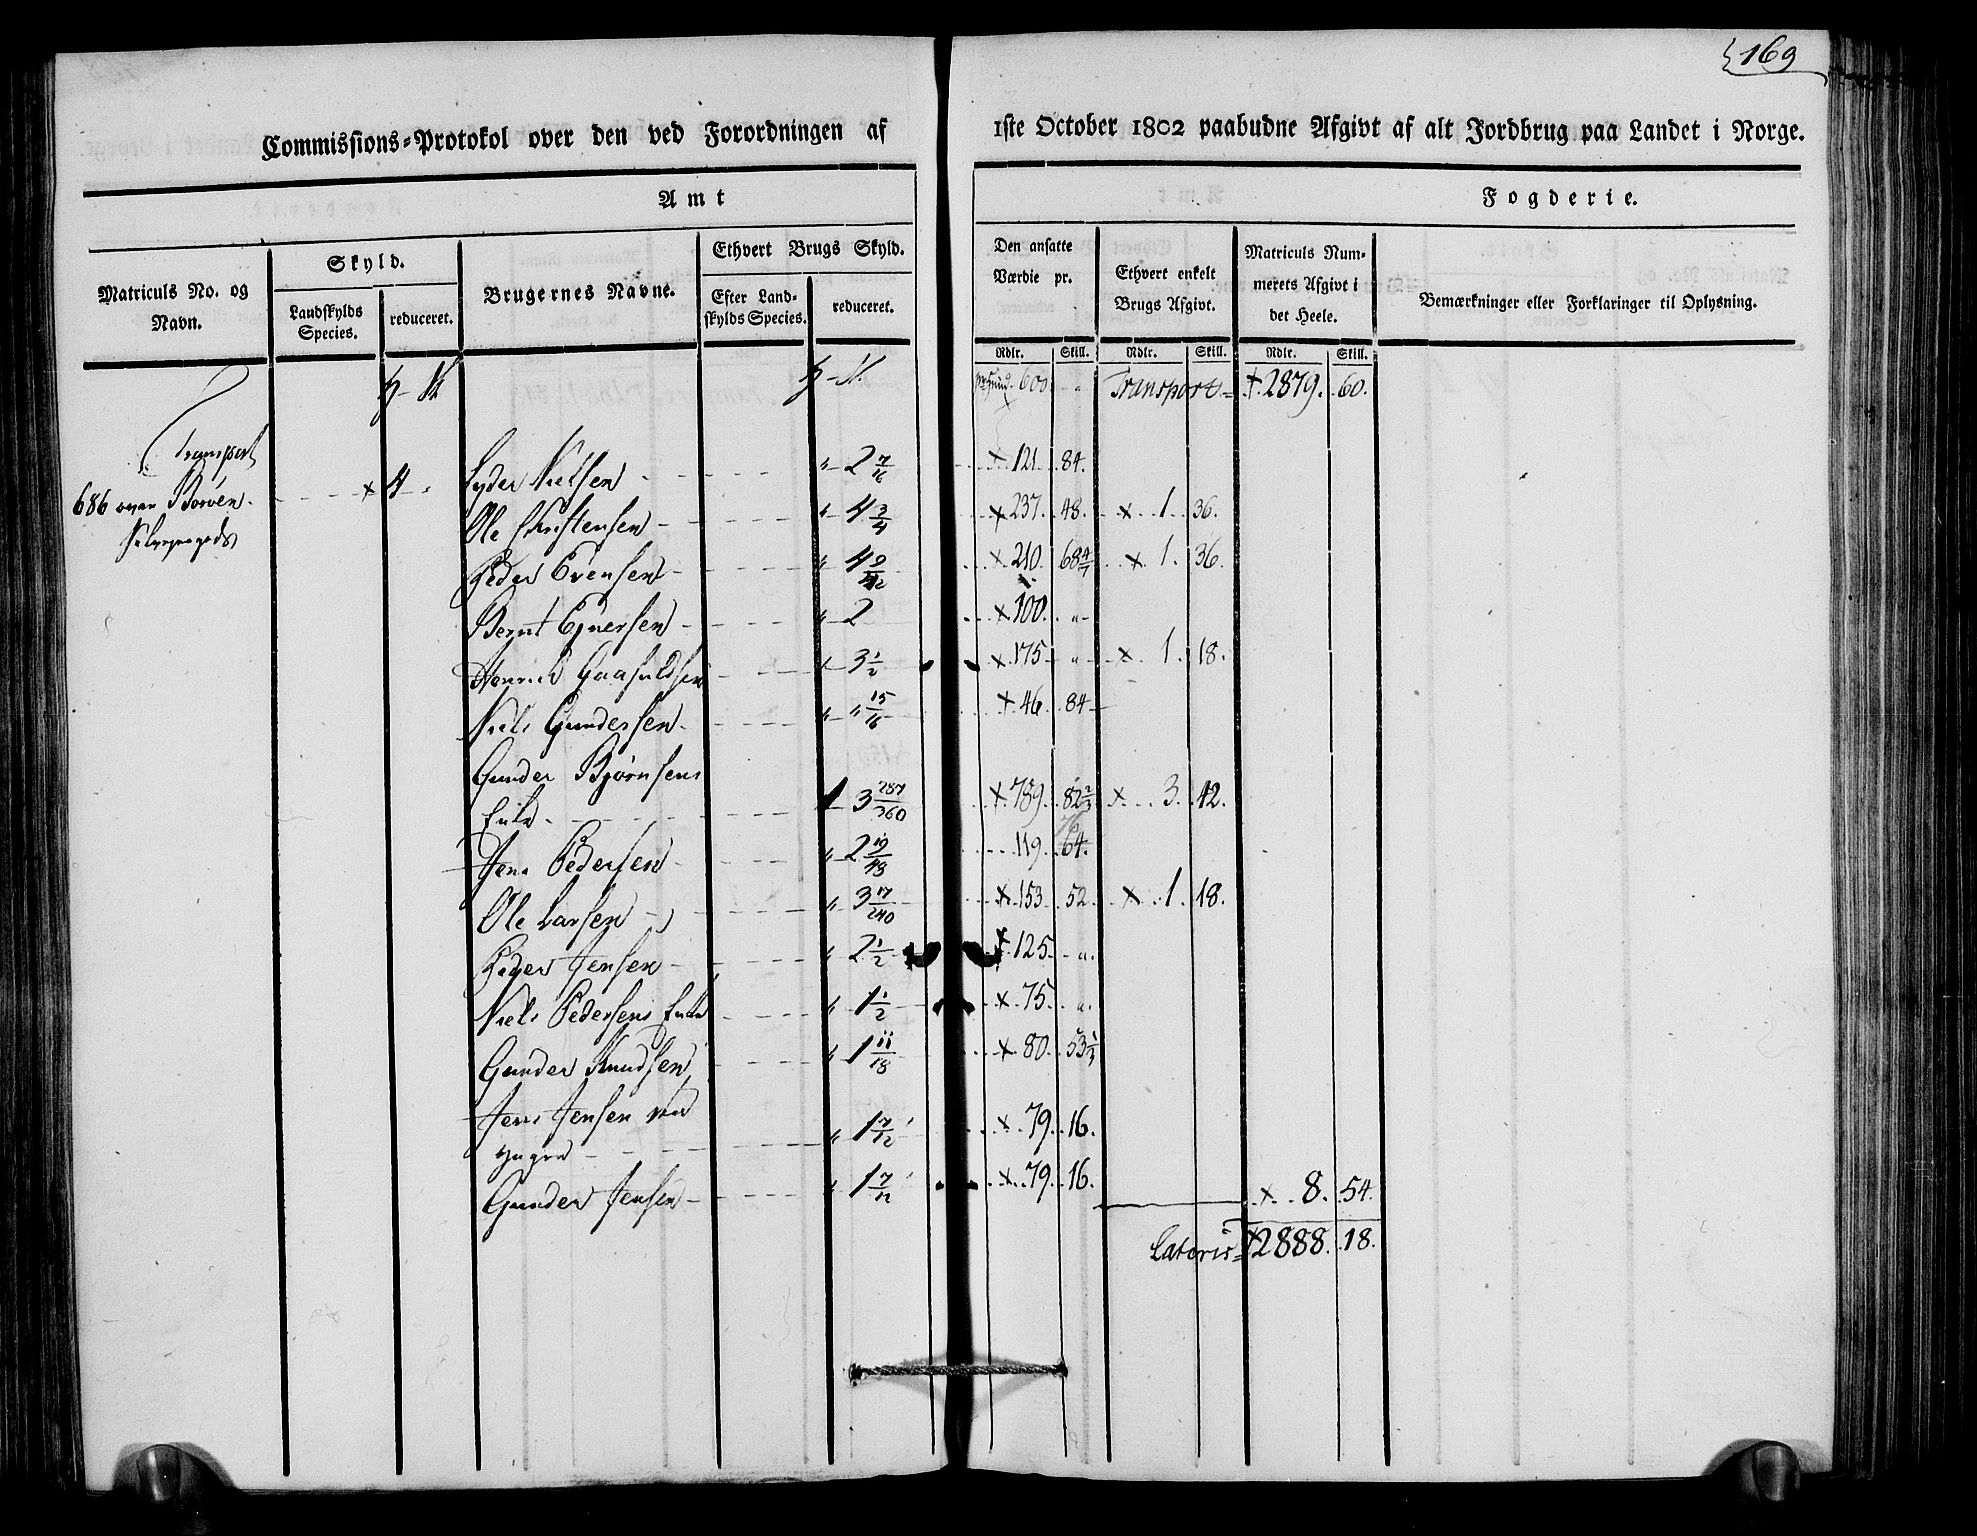 169
Commissions-Protokol over den ved Forordningen af 1ste October 1802 paabudne Afgivt af alt Jordbrug paa Landet i Norge.
Amt Fogderie.
Matriculs No. og Navn.
Skyld.
Landskylds Species.
reduceret.
Brugernes Navne.
Ethvert Brugs Skyld.
Efter Landskylds Species.
reduceret.
Den ansatte Værdie pr.
Ethvert enkelt Brugs Afgivt.
Matriculs Nummerets Afgivt i det Heele.
Bemærkninger eller Forklaringer til Oplysning.
Rdlr. Skill. Rdlr. Skill. Rdlr. Skill.
600 " Transport = 2879. 60.
Transport
Lyder Nielsen - " 2 7/16 121 84.
686 Borven 4
Ole Christensen - " 4 3/4 237. 48. 1. 36.
Peder Evensen - " 4 210. 68 4/7 1. 36.
Bernt Ejnersen - " 2 100. "
Henrich " 3 1/2 175 " 1. 18.
Niels Gundersen - " " 15/16 46. 84
Gunder Bjørnsens
Enke - 1 3 287/360 789. 82 2/3 3. 12.
Jens Pedersen - " 2 19/48 119. 64. 76
Ole Larsen - " 3 17/240 153. 52. 1. 18.
Peder Jensen - " 2 1/2 125. "
Niels Pedersens Enke " 1 1/2 75. "
Gunder Knudsen " 1 11/18 80. 53 1/3
Jens Jensen
yngre - " 1 7/12 79. 16.
Gunder Jensen - " 1 7/12 79. 16. 8. 54.
Lateris = 2888. 18.